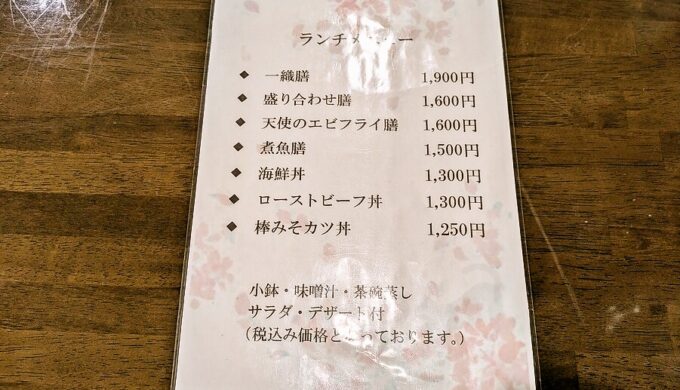 ランチメニュー
◆ 一織膳 1,900円
◆ 盛り合わせ膳 1,600円
◆ 天使のエビフライ膳 1,600円
◆ 煮魚膳 1,500円
◆ 海鮮丼 1,300円
◆ ローストビーフ丼 1,300円
◆ 棒みそカツ丼 1,250円
小鉢・味噌汁・茶碗蒸し
サラダ・デザート付
(税込み価格となっております。)